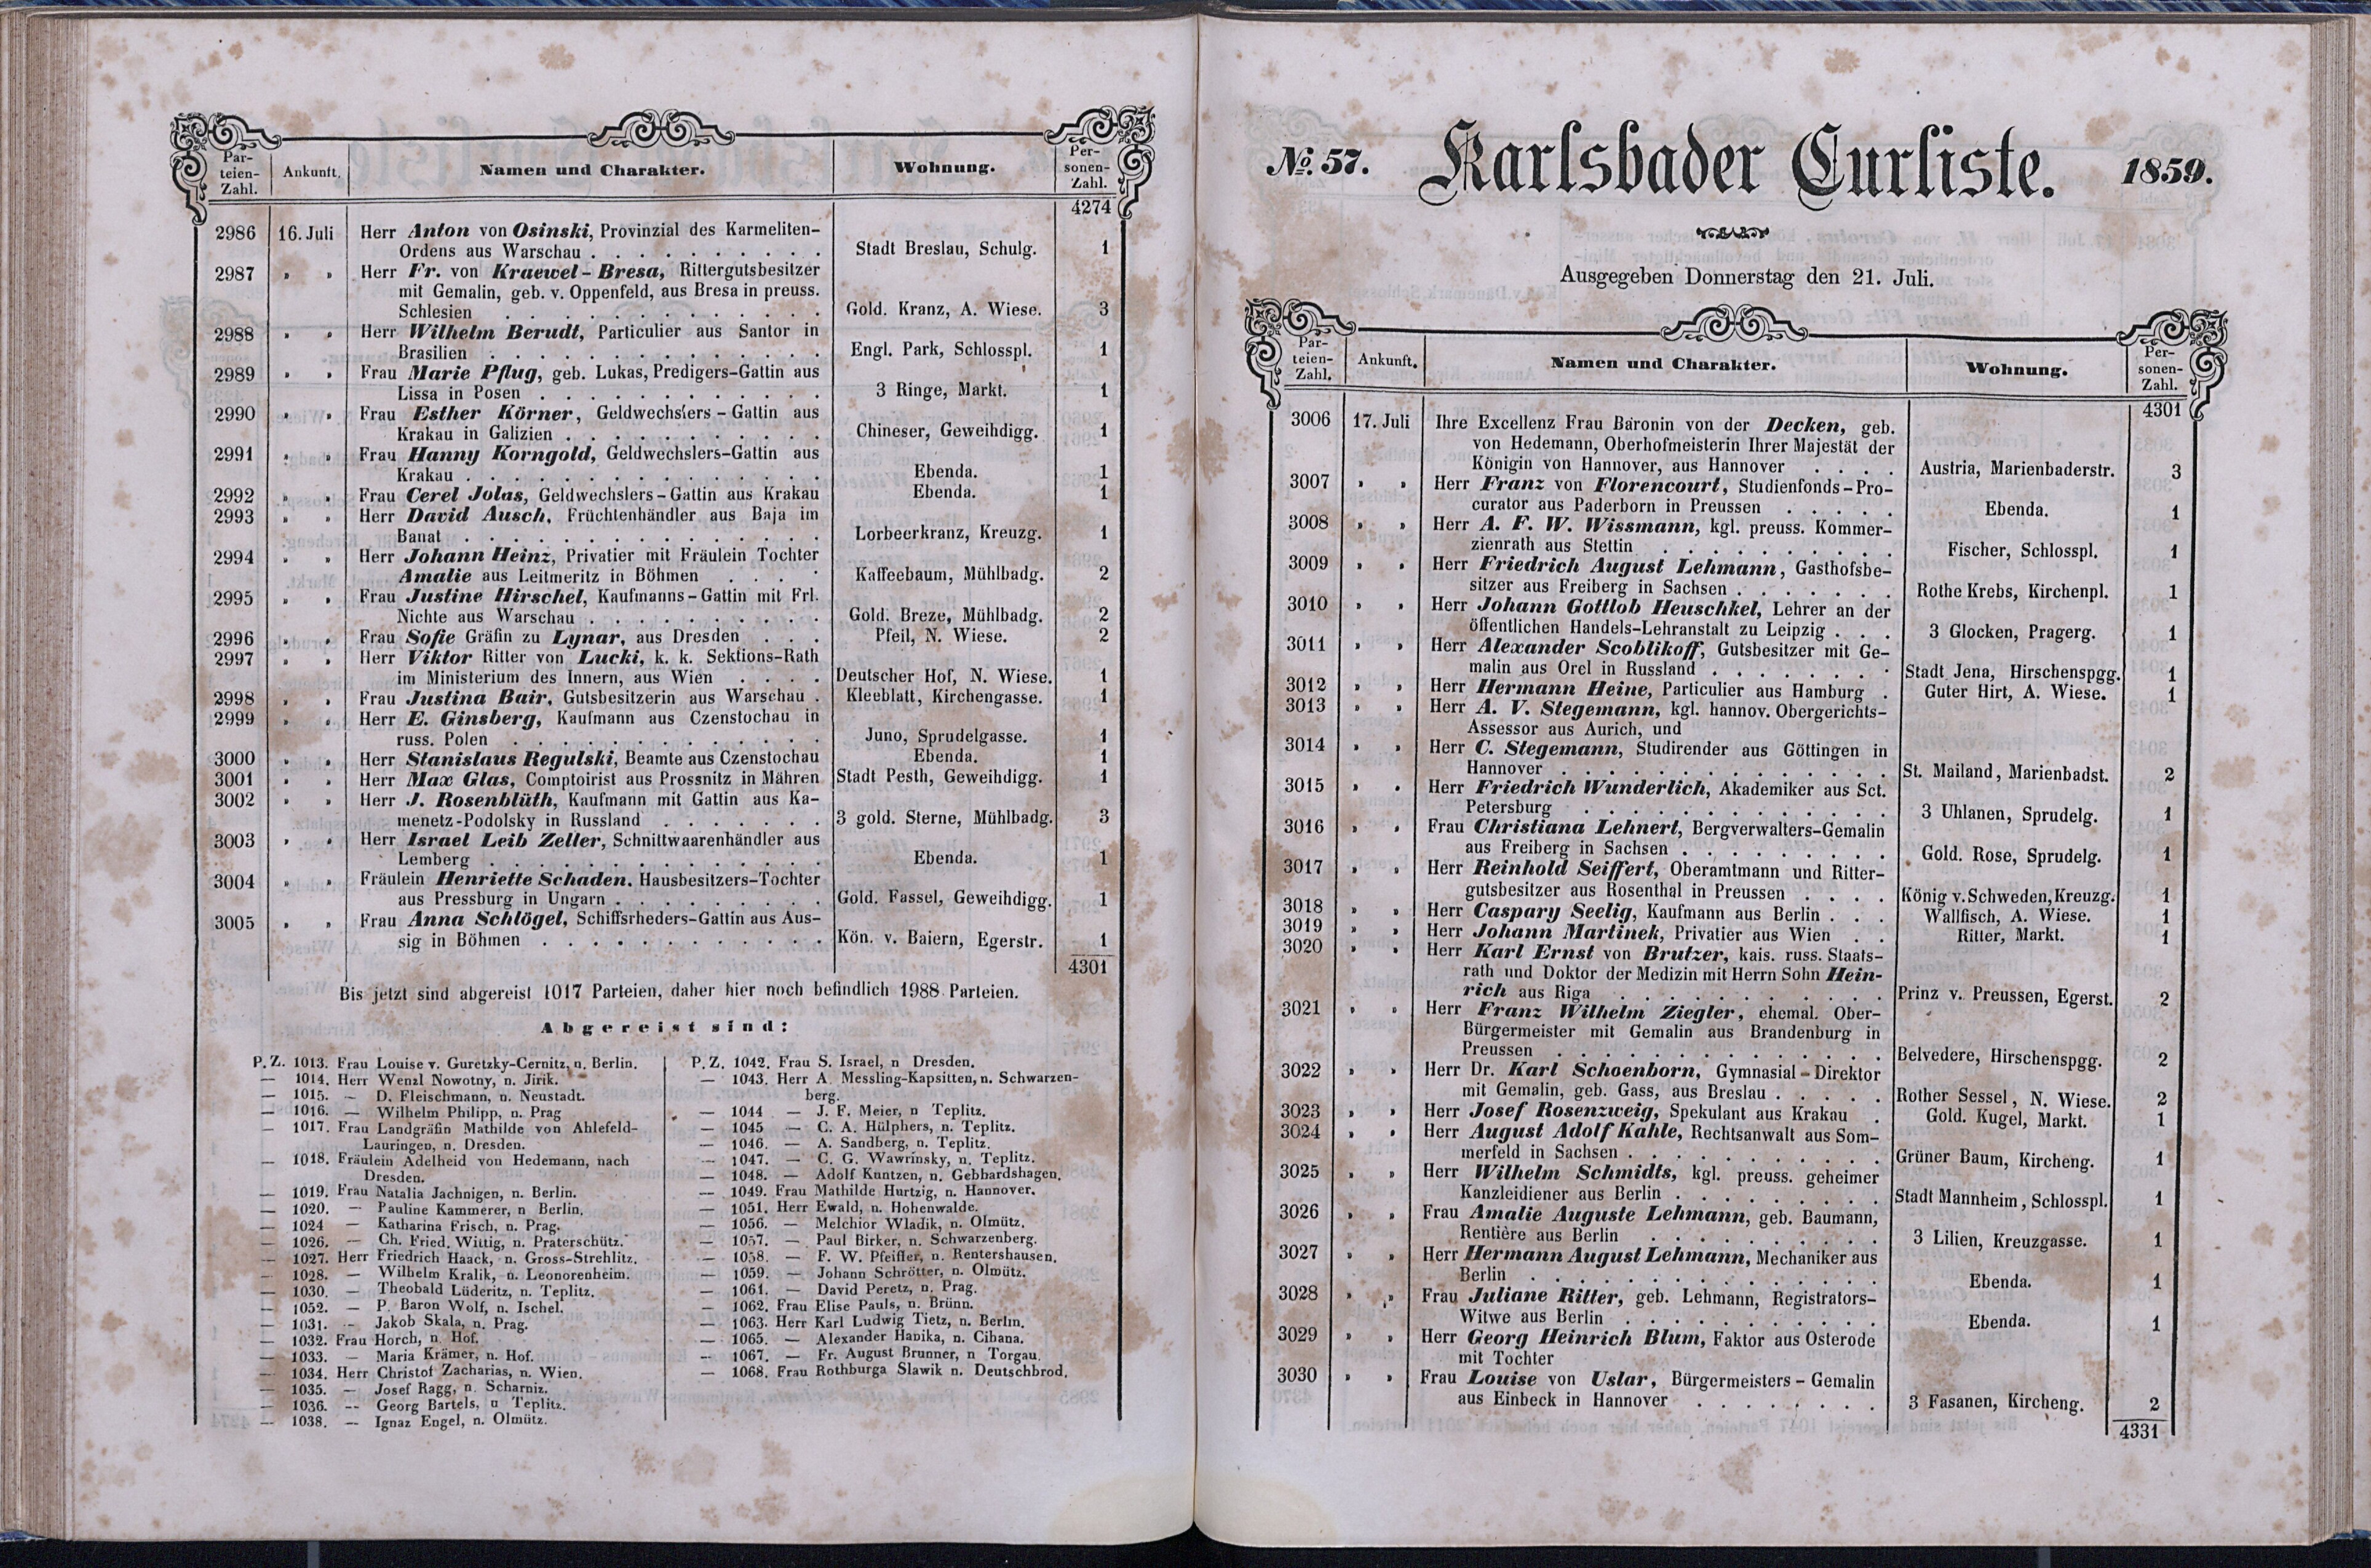 Par-
teien-
Zahl.
Ankunft.
Namen und Charakter.
Wohnung.
Per-
sonen-
Zahl.
4274
2986 16. Juli Herr Anton von Osinski, Provinzial des Karmeliten-
Ordens aus Warschau . . . . . . . . . . Stadt Breslau, Schulg. 1
2987 „ „ Herr Fr. von Kraewel-Bresa, Rittergutsbesitzer
mit Gemalin, geb. v. Oppenfeld, aus Bresa in preuss.
Schlesien . . . . . . . . . . . . Gold. Kranz, A. Wiese. 3
2988 „ „ Herr Wilhelm Berudt, Particulier aus Santor in
Brasilien . . . . . . . . . . . . . Engl. Park, Schlosspl. 1
2989 „ „ Frau Marie Pflug, geb. Lukas, Predigers-Gattin aus
Lissa in Posen . . . . . . . . . . . 3 Ringe, Markt. 1
2990 „ „ Frau Esther Körner, Geldwechslers-Gattin aus
Krakau in Galizien . . . . . . . . . . Chineser, Geweihdigg. 1
2991 „ „ Frau Hanny Korngold, Geldwechslers-Gattin aus
Krakau . . . . . . . . . . . . . . Ebenda. 1
2992 „ „ Frau Cerel Jolas, Geldwechslers-Gattin aus Krakau Ebenda. 1
2993 „ „ Herr David Ausch, Früchtenhändler aus Baja im
Banat . . . . . . . . . . . . . . Lorbeerkranz, Kreuzg. 1
2994 „ „ Herr Johann Heinz, Privatier mit Fräulein Tochter
Amalie aus Leitmeritz in Böhmen . . . . Kaffeebaum, Mühlbadg. 2
2995 „ „ Frau Justine Hirschel, Kaufmanns-Gattin mit Frl.
Nichte aus Warschau . . . . . . . . . Gold. Breze, Mühlbadg. 2
2996 „ „ Frau Sofie Gräfin zu Lynar, aus Dresden . . . Pfeil, N. Wiese. 2
2997 „ „ Herr Viktor Ritter von Lucki, k. k. Sektions-Rath
im Ministerium des Innern, aus Wien . . . . Deutscher Hof, N. Wiese. 1
2998 „ „ Frau Justina Bair, Gutsbesitzerin aus Warschau . Kleeblatt, Kirchengasse. 1
2999 „ „ Herr E. Ginsberg, Kaufmann aus Czenstochau in
russ. Polen . . . . . . . . . . . . Juno, Sprudelgasse. 1
3000 „ „ Herr Stanislaus Regulski, Beamte aus Czenstochau Ebenda. 1
3001 „ „ Herr Max Glas, Comptoirist aus Prossnitz in Mähren Stadt Pesth, Geweihdigg. 1
3002 „ „ Herr J. Rosenblüth, Kaufmann mit Gattin aus Ka-
menetz-Podolsky in Russland . . . . . . . 3 gold. Sterne, Mühlbadg. 3
3003 „ „ Herr Israel Leib Zeller, Schnittwaarenhändler aus
Lemberg . . . . . . . . . . . . . Ebenda. 1
3004 „ „ Fräulein Henriette Schaden. Hausbesitzers-Tochter
aus Pressburg in Ungarn . . . . . . . . Gold. Fassel, Geweihdigg. 1
3005 „ „ Frau Anna Schlögel, Schiffsrheders-Gattin aus Aus-
sig in Böhmen . . . . . . . . . . . Kön. v. Baiern, Egerstr. 1
4301
Bis jetzt sind abgereist 1017 Parteien, daher hier noch befindlich 1988 Parteien.
Abgereist sind:
P. Z. 1013. Frau Louise v. Guretzky-Cernitz, n. Berlin.
— 1014. Herr Wenzl Nowotny, n. Jirik.
— 1015. — D. Fleischmann, n. Neustadt.
— 1016. — Wilhelm Philipp, n. Prag
— 1017. Frau Landgräfin Mathilde von Ahlefeld-
Lauringen, n. Dresden.
— 1018. Fräulein Adelheid von Hedemann, nach
Dresden.
— 1019. Frau Natalia Jachnigen, n. Berlin.
— 1020. — Pauline Kammerer, n Berlin.
— 1024 — Katharina Frisch, n. Prag.
— 1026. — Ch. Fried. Wittig, n. Praterschütz.
— 1027. Herr Friedrich Haack, n. Gross-Strehlitz.
— 1028. — Wilhelm Kralik, n. Leonorenheim.
— 1030. — Theobald Lüderitz, n. Teplitz.
— 1052. — P. Baron Wolf, n. Ischel.
— 1031. — Jakob Skala, n. Prag.
— 1032. Frau Horch, n. Hof.
— 1033. — Maria Krämer, n. Hof.
— 1034. Herr Christof Zacharias, n. Wien.
— 1035. — Josef Ragg, n. Scharniz.
— 1036. — Georg Bartels, n Teplitz.
— 1038. — Ignaz Engel, n. Olmütz.
P. Z. 1042. Frau S. Israel, n Dresden.
— 1043. Herr A. Messling-Kapsitten, n. Schwarzen-
berg.
— 1044 — J. F. Meier, n Teplitz.
— 1045 — C. A. Hülphers, n. Teplitz.
— 1046. — A. Sandberg, n. Teplitz.
— 1047. — C. G. Wawrinsky, n. Teplitz.
— 1048. — Adolf Kuntzen, n. Gebhardshagen.
— 1049. Frau Mathilde Hurtzig, n. Hannover.
— 1051. Herr Ewald, n. Hohenwalde.
— 1056. — Melchior Wladik, n. Olmütz.
— 1057. — Paul Birker, n. Schwarzenberg.
— 1058. — F. W. Pfeiffer, n. Rentershausen.
— 1059. — Johann Schrötter, n. Olmütz.
— 1061. — David Peretz, n. Prag.
— 1062. Frau Elise Pauls, n. Brünn.
— 1063. Herr Karl Ludwig Tietz, n. Berlin.
— 1065. — Alexander Hanika, n. Cibana.
— 1067. — Fr. August Brunner, n Torgau.
— 1068. Frau Rothburga Slawik n. Deutschbrod.
No. 57. Karlsbader Curliste. 1859.
Ausgegeben Donnerstag den 21. Juli.
Par-
teien-
Zahl.
Ankunft.
Namen und Charakter.
Wohnung.
Per-
sonen-
Zahl.
4301
3006 17. Juli Ihre Excellenz Frau Baronin von der Decken, geb.
von Hedemann, Oberhofmeisterin Ihrer Majestät der
Königin von Hannover, aus Hannover . . . . Austria, Marienbaderstr. 3
3007 „ „ Herr Franz von Florencourt, Studienfonds-Pro-
curator aus Paderborn in Preussen . . . . . Ebenda. 1
3008 „ „ Herr A. F. W. Wissmann, kgl. preuss. Kommer-
zienrath aus Stettin . . . . . . . . . . Fischer, Schlosspl. 1
3009 „ „ Herr Friedrich August Lehmann, Gasthofsbe-
sitzer aus Freiberg in Sachsen . . . . . . . Rothe Krebs, Kirchenpl. 1
3010 „ „ Herr Johann Gottlob Heuschkel, Lehrer an der
öffentlichen Handels-Lehranstalt zu Leipzig . . . 3 Glocken, Pragerg. 1
3011 „ „ Herr Alexander Scoblikoff, Gutsbesitzer mit Ge-
malin aus Orel in Russland . . . . . . . Stadt Jena, Hirschenspgg. 1
3012 „ „ Herr Hermann Heine, Particulier aus Hamburg . Guter Hirt, A. Wiese. 1
3013 „ „ Herr A. V. Stegemann, kgl. hannov. Obergerichts-
Assessor aus Aurich, und
3014 „ „ Herr C. Stegemann, Studirender aus Göttingen in
Hannover . . . . . . . . . . . . . St. Mailand, Marienbadst. 2
3015 „ „ Herr Friedrich Wunderlich, Akademiker aus Sct.
Petersburg . . . . . . . . . . . . 3 Uhlanen, Sprudelg. 1
3016 „ „ Frau Christiana Lehnert, Bergverwalters-Gemalin
aus Freiberg in Sachsen . . . . . . . . . Gold. Rose, Sprudelg. 1
3017 „ „ Herr Reinhold Seiffert, Oberamtmann und Ritter-
gutsbesitzer aus Rosenthal in Preussen . . . . König v. Schweden, Kreuzg. 1
3018 „ „ Herr Caspary Seelig, Kaufmann aus Berlin . . . Wallfisch, A. Wiese. 1
3019 „ „ Herr Johann Martinek, Privatier aus Wien . . Ritter, Markt. 1
3020 „ „ Herr Karl Ernst von Brutzer, kais. russ. Staats-
rath und Doktor der Medizin mit Herrn Sohn Hein-
rich aus Riga . . . . . . . . . . . Prinz v. Preussen, Egerst. 2
3021 „ „ Herr Franz Wilhelm Ziegler, ehemal. Ober-
Bürgermeister mit Gemalin aus Brandenburg in
Preussen . . . . . . . . . . . . . Belvedere, Hirschenspgg. 2
3022 „ „ Herr Dr. Karl Schoenborn, Gymnasial-Direktor
mit Gemalin, geb. Gass, aus Breslau . . . . . Rother Sessel, N. Wiese. 2
3023 „ „ Herr Josef Rosenzweig, Spekulant aus Krakau . Gold. Kugel, Markt. 1
3024 „ „ Herr August Adolf Kahle, Rechtsanwalt aus Som-
merfeld in Sachsen . . . . . . . . . . . Grüner Baum, Kircheng. 1
3025 „ „ Herr Wilhelm Schmidts, kgl. preuss. geheimer
Kanzleidiener aus Berlin . . . . . . . . . Stadt Mannheim, Schlosspl. 1
3026 „ „ Frau Amalie Auguste Lehmann, geb. Baumann,
Rentière aus Berlin . . . . . . . . . . 3 Lilien, Kreuzgasse. 1
3027 „ „ Herr Hermann August Lehmann, Mechaniker aus
Berlin . . . . . . . . . . . . . . Ebenda. 1
3028 „ „ Frau Juliane Ritter, geb. Lehmann, Registrators-
Witwe aus Berlin . . . . . . . . . . . Ebenda. 1
3029 „ „ Herr Georg Heinrich Blum, Faktor aus Osterode
mit Tochter
3030 „ „ Frau Louise von Uslar, Bürgermeisters-Gemalin
aus Einbeck in Hannover . . . . . . . . 3 Fasanen, Kircheng. 2
4331